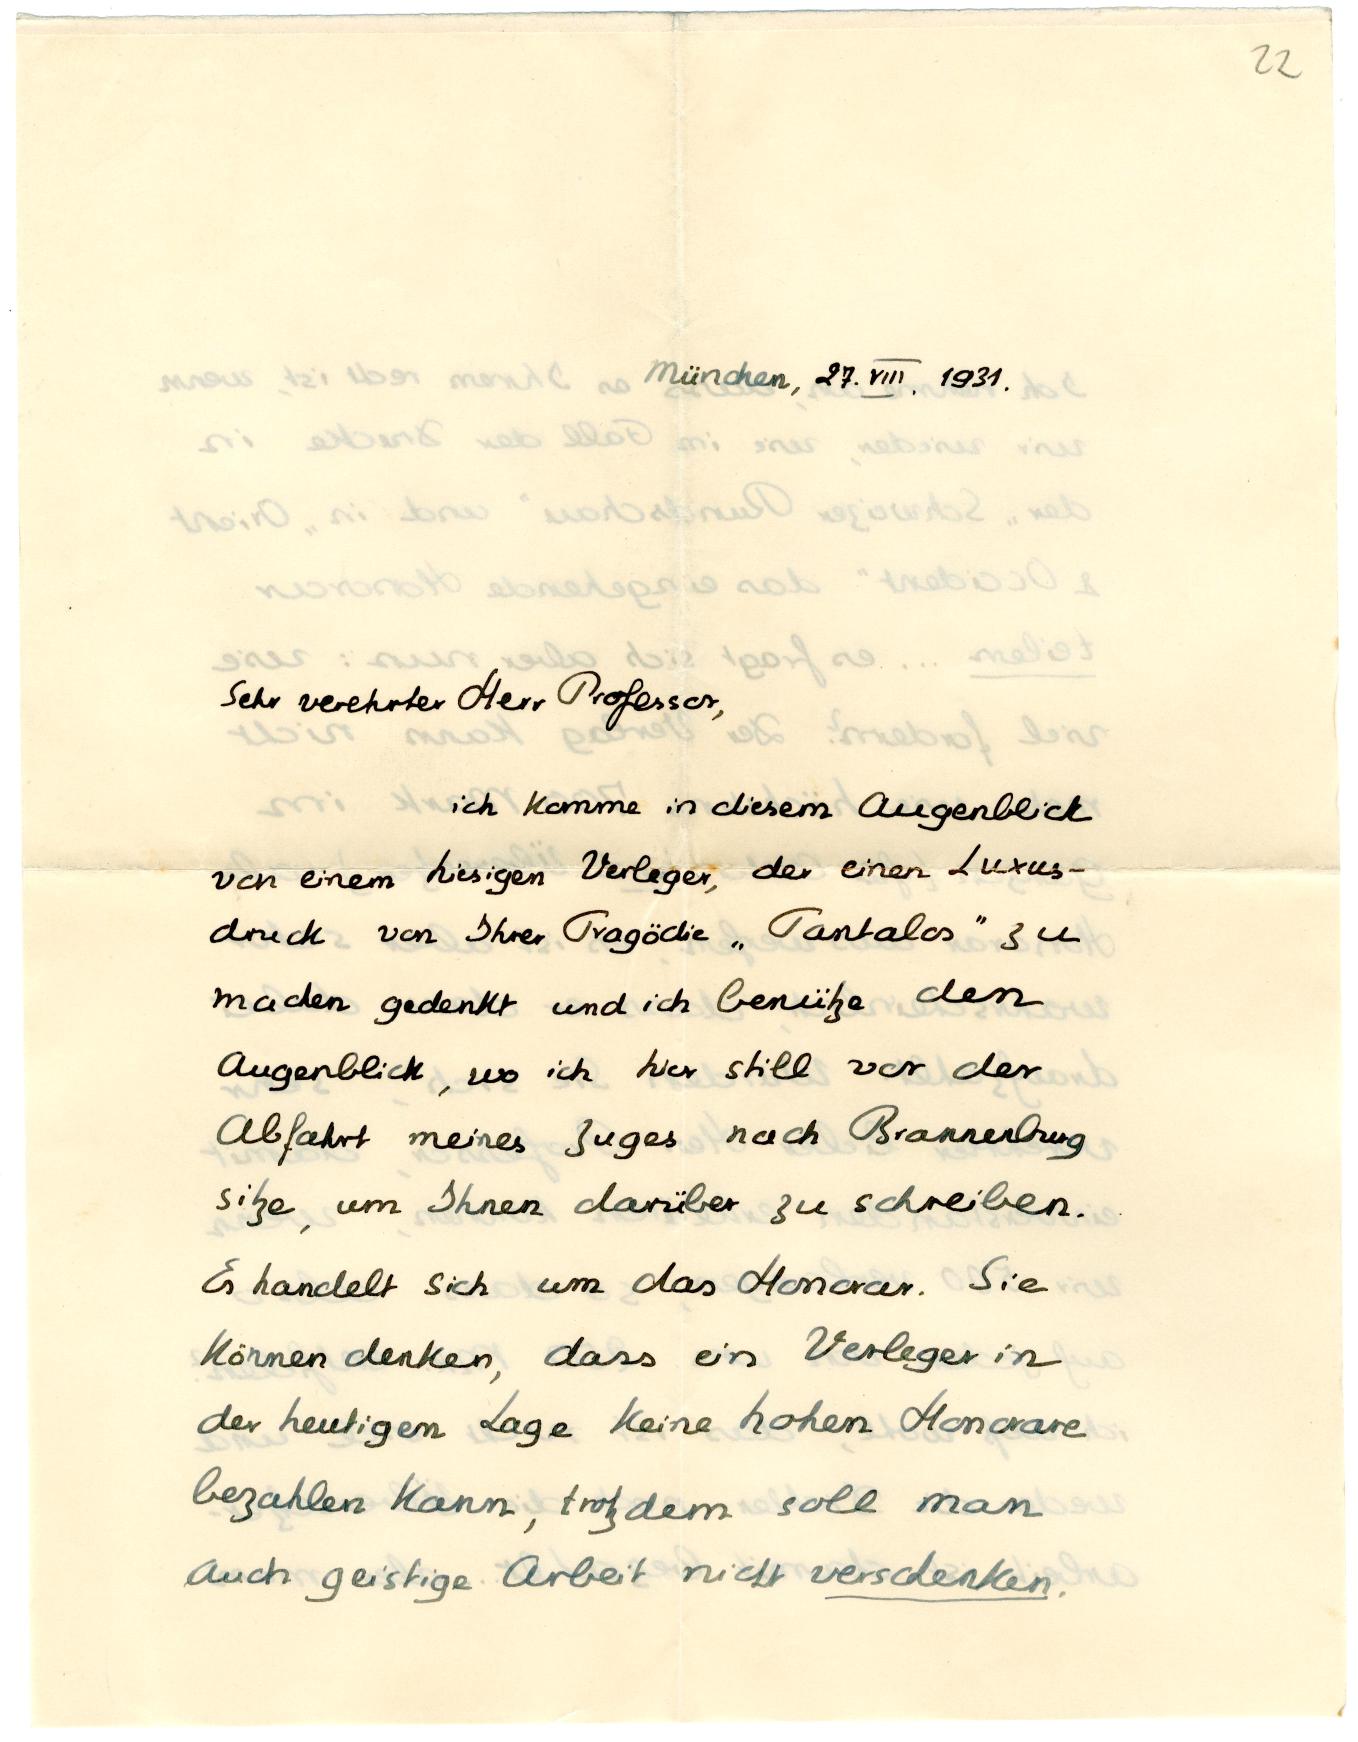 22
München, 27. VIII. 1931.
Sehr verehrter Herr Professor,
ich komme in diesem Augenblick
von einem hiesigen Verleger, der einen Luxus-
druck von Ihrer Tragödie „Tantalos" zu
machen gedenkt und ich benütze den
Augenblick, wo ich hier still vor der
Abfahrt meines Zuges nach Brannenburg
sitze, um Ihnen darüber zu schreiben.
Es handelt sich um das Honorar. Sie
können denken, dass ein Verleger in
der heutigen Lage keine hohen Honorare
bezahlen kann, trotzdem soll man
auch geistige Arbeit nicht verschenken.